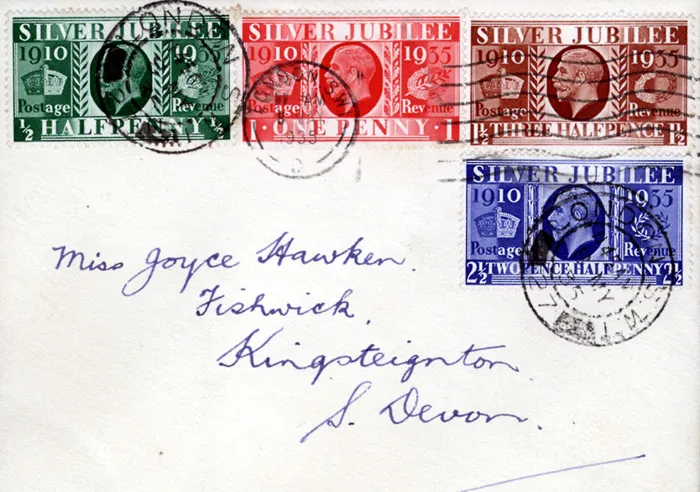 SILVER JUBILEE
1910 1935
Postage Revenue
½ HALFPENNY ½
SILVER JUBILEE
1910 1935
Postage Revenue
1 ONE PENNY 1
SILVER JUBILEE
1910 1935
Postage Revenue
1½ THREE HALFPENCE 1½
SILVER JUBILEE
1910 1935
Postage Revenue
2½ TWOPENCE HALFPENNY 2½
LONDON
LONDON. S.W.
1935
LONDON S.W.1
MY
Miss Joyce Hawken.
Fishwick,
Kingsteignton.
S. Devon.